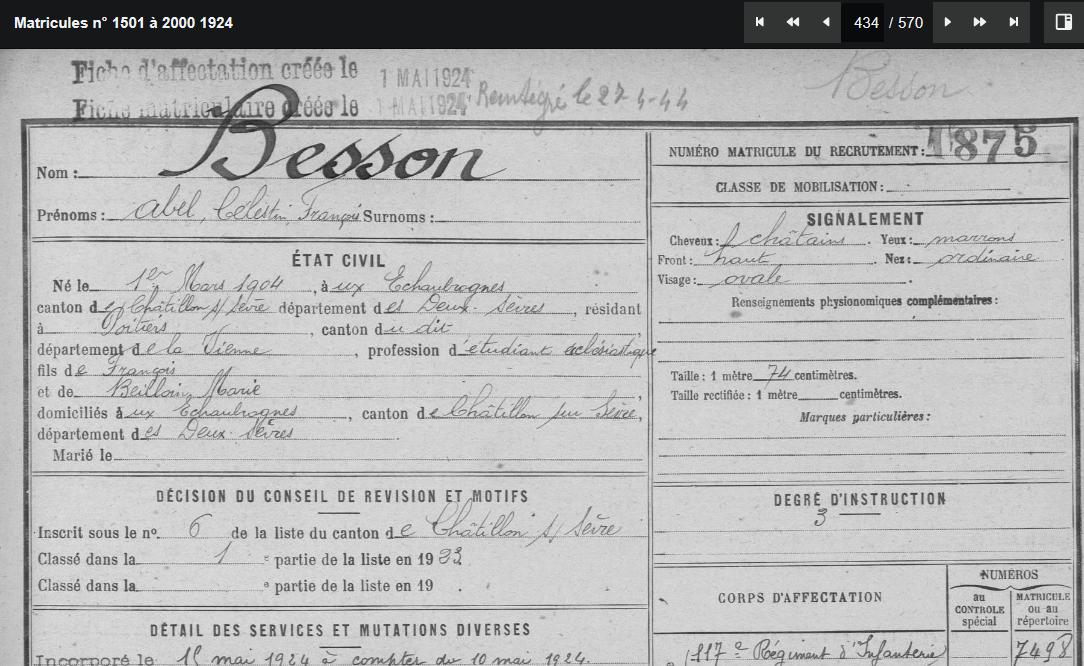 Matricules n° 1501 à 2000 1924
434 / 570
Fiche d'affectation créée le 1 MAI 1924
Fiche matriculaire créée le 1 MAI 1924 Réintégré le 27-4-44
Besson
Nom : Besson
Prénoms : Abel, Célestin, François Surnoms :
NUMÉRO MATRICULE DU RECRUTEMENT : 1875
CLASSE DE MOBILISATION :
ÉTAT CIVIL
Né le 1er Mars 1904, à ux Echaubrognes
canton de Châtillon s/ Sèvre département des Deux-Sèvres, résidant
à Poitiers, canton du dit
département de la Vienne, profession d'étudiant ecclésiastique
fils de François
et de Beilloin, Marie
domiciliés à ux Echaubrognes, canton de Châtillon sur Sèvre,
département des Deux-Sèvres
Marié le
SIGNALEMENT
Cheveux : châtains. Yeux : marrons
Front : haut. Nez : ordinaire
Visage : ovale.
Renseignements physionomiques complémentaires :
Taille : 1 mètre 74 centimètres.
Taille rectifiée : 1 mètre centimètres.
Marques particulières :
DÉCISION DU CONSEIL DE REVISION ET MOTIFS
Inscrit sous le no 6 de la liste du canton de Châtillon s/ Sèvre
Classé dans la 1 e partie de la liste en 19
Classé dans la e partie de la liste en 19 .
DEGRÉ D'INSTRUCTION
3
DÉTAIL DES SERVICES ET MUTATIONS DIVERSES
Incorporé le mai 1924 à compter du 10 mai 1924.
CORPS D'AFFECTATION
NUMÉROS
au CONTROLE spécial
MATRICULE ou au répertoire
117e Régiment d'Infanterie 7498